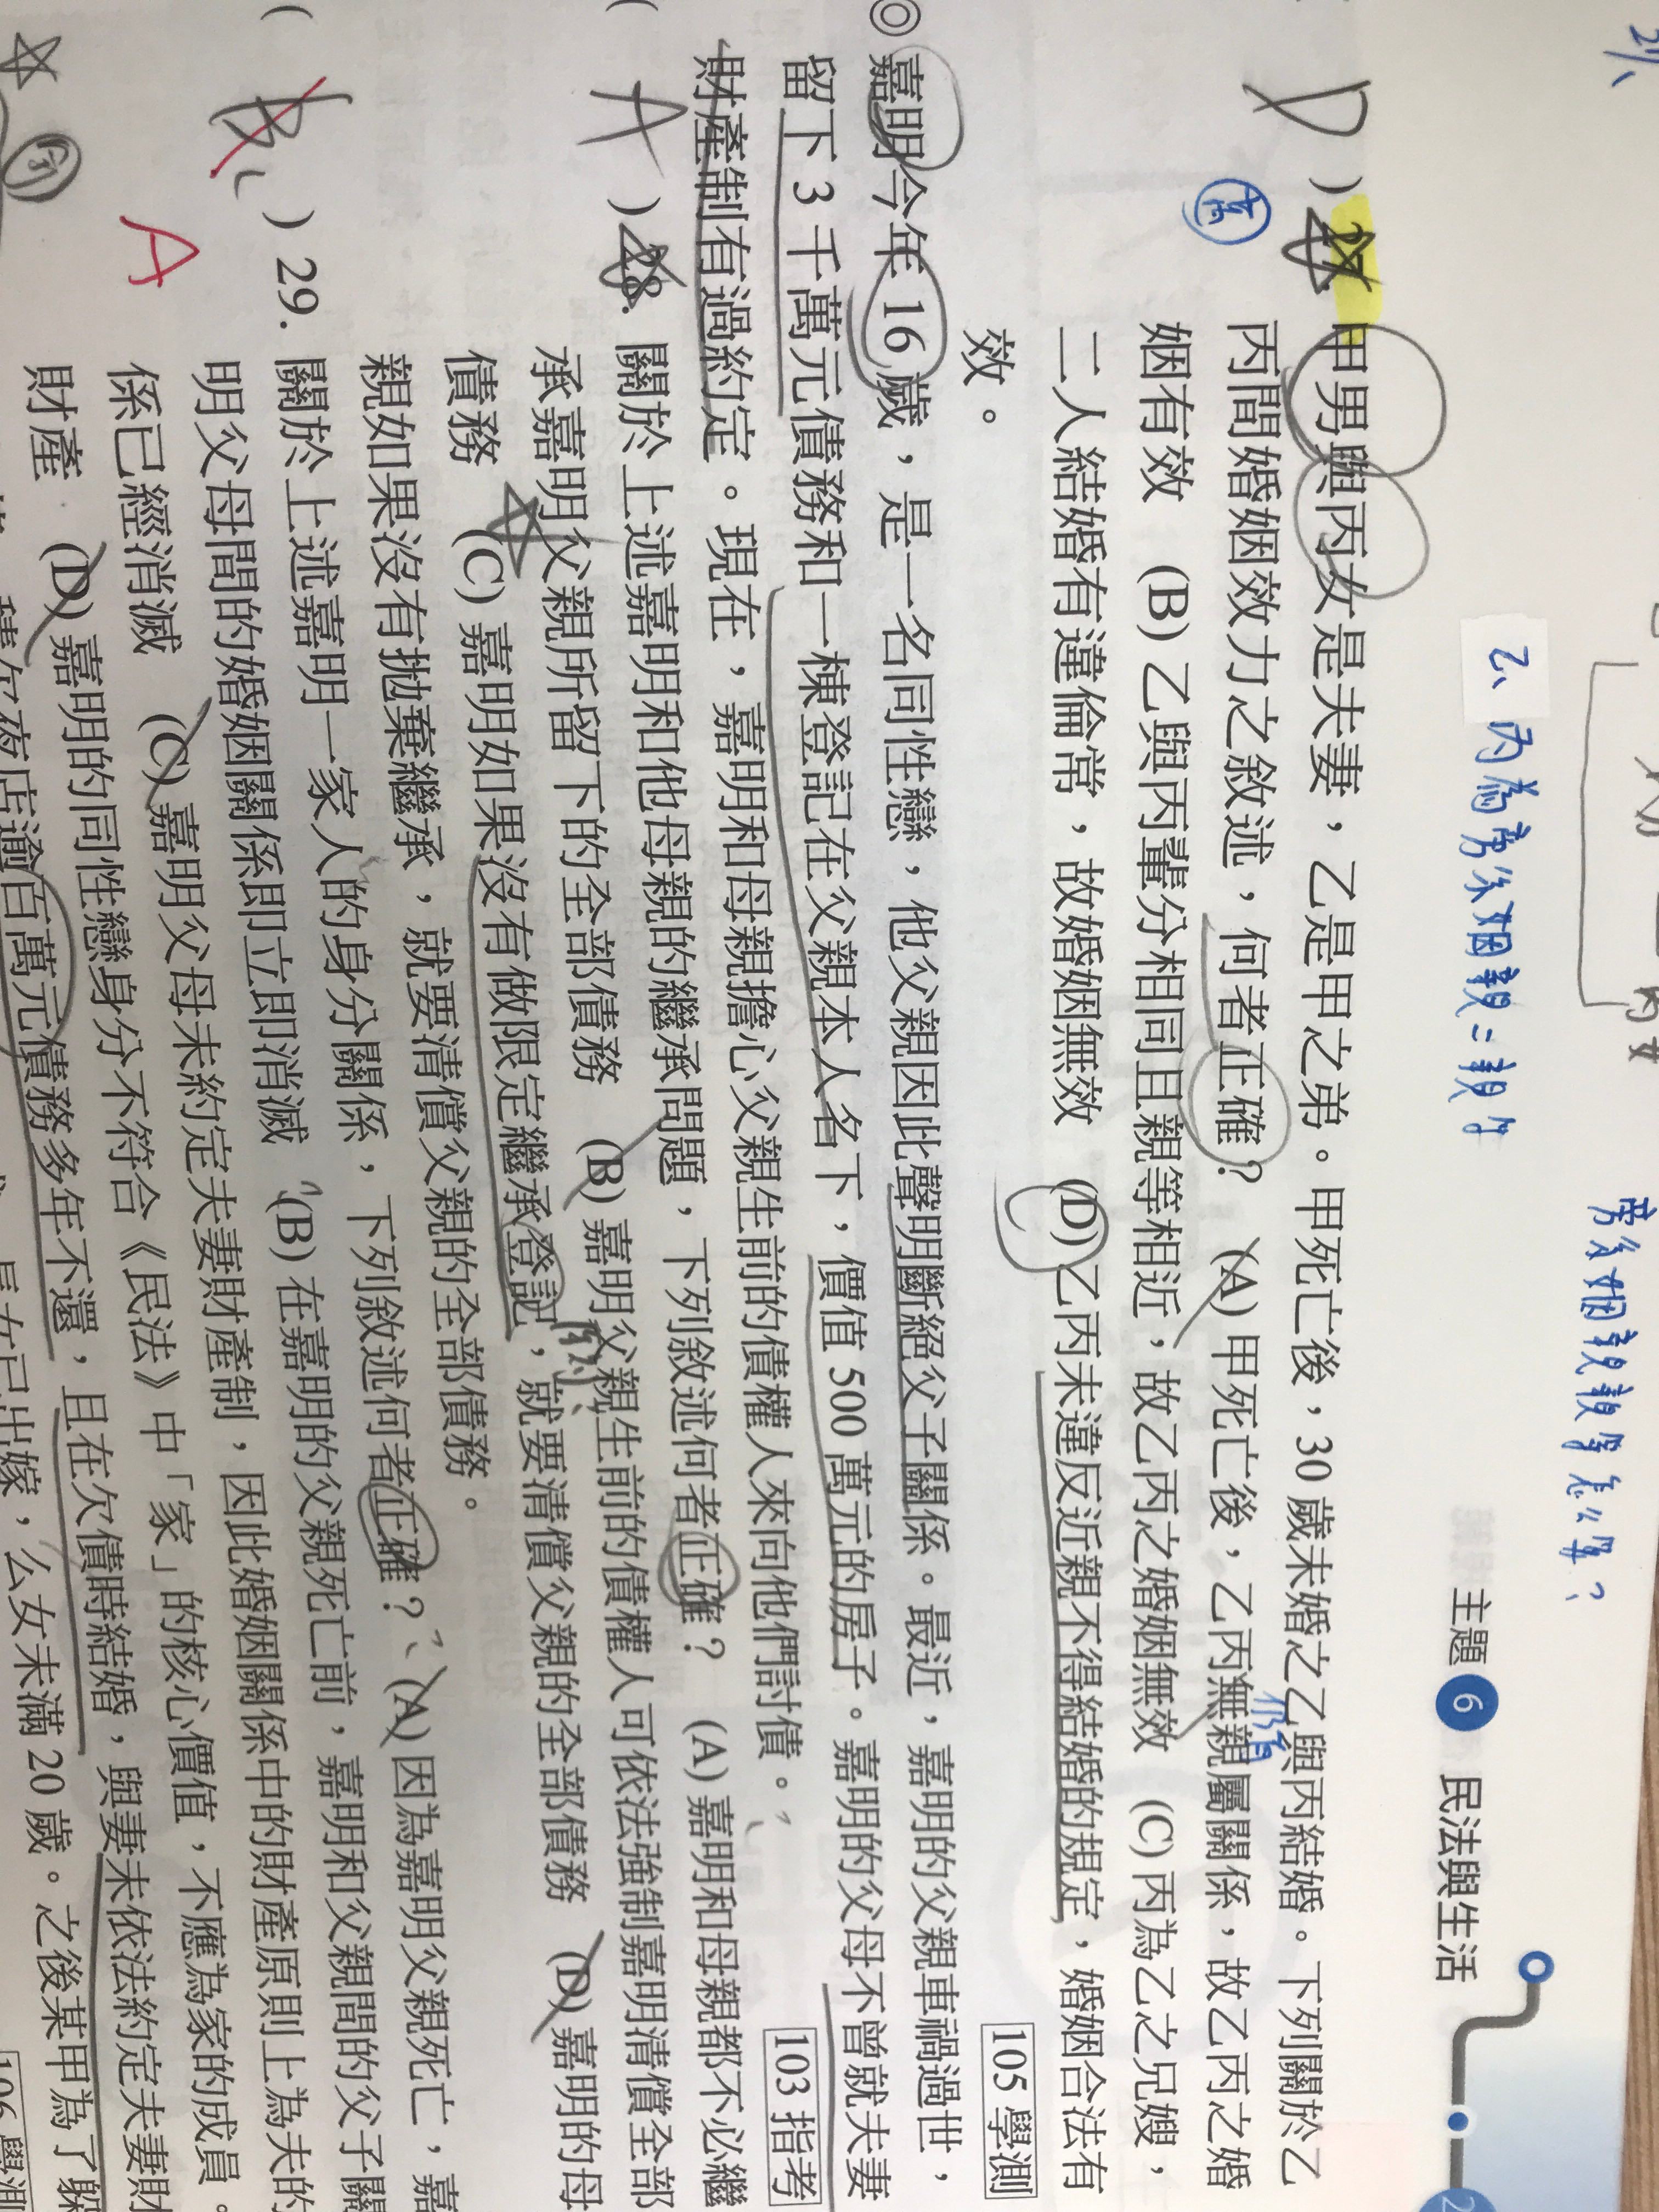 旁系姻親親等怎麼算？
乙、丙為旁系姻親二親等
主題 6 民法與生活
D ) 27. 甲男與丙女是夫妻，乙是甲之弟。甲死亡後，30 歲未婚之乙與丙結婚。下列關於乙
丙間婚姻效力之敘述，何者正確？ (A) 甲死亡後，乙丙無親屬關係，故乙丙之婚
仍有
姻有效 (B) 乙與丙輩分相同且親等相近，故乙丙之婚姻無效 (C) 丙為乙之兄嫂，
二人結婚有違倫常，故婚姻無效 (D) 乙丙未違反近親不得結婚的規定，婚姻合法有
效。
105 學測
◎嘉明今年 16 歲，是一名同性戀，他父親因此聲明斷絕父子關係。最近，嘉明的父親車禍過世，
留下 3 千萬元債務和一棟登記在父親本人名下，價值 500 萬元的房子。嘉明的父母不曾就夫妻
財產制有過約定。現在，嘉明和母親擔心父親生前的債權人來向他們討債。
103 指考
( A ) 28. 關於上述嘉明和他母親的繼承問題，下列敘述何者正確？ (A) 嘉明和母親都不必繼
承嘉明父親所留下的全部債務 (B) 嘉明父親生前的債權人可依法強制嘉明清償全部
債務 (C) 嘉明如果沒有做限定繼承登記，就要清償父親的全部債務 (D) 嘉明的母
親如果沒有拋棄繼承，就要清償父親的全部債務。
( B ) 29. 關於上述嘉明一家人的身分關係，下列敘述何者正確？ (A) 因為嘉明父親死亡，嘉
A
明父母間的婚姻關係即立即消滅 (B) 在嘉明的父親死亡前，嘉明和父親間的父子關
係已經消滅 (C) 嘉明父母未約定夫妻財產制，因此婚姻關係中的財產原則上為夫的
財產 (D) 嘉明的同性戀身分不符合《民法》中「家」的核心價值，不應為家的成員。
百萬元債務多年不還，且在欠債時結婚，與妻未依法約定夫妻財
已出嫁，么女未滿 20 歲。之後某甲為了躲
106 學測